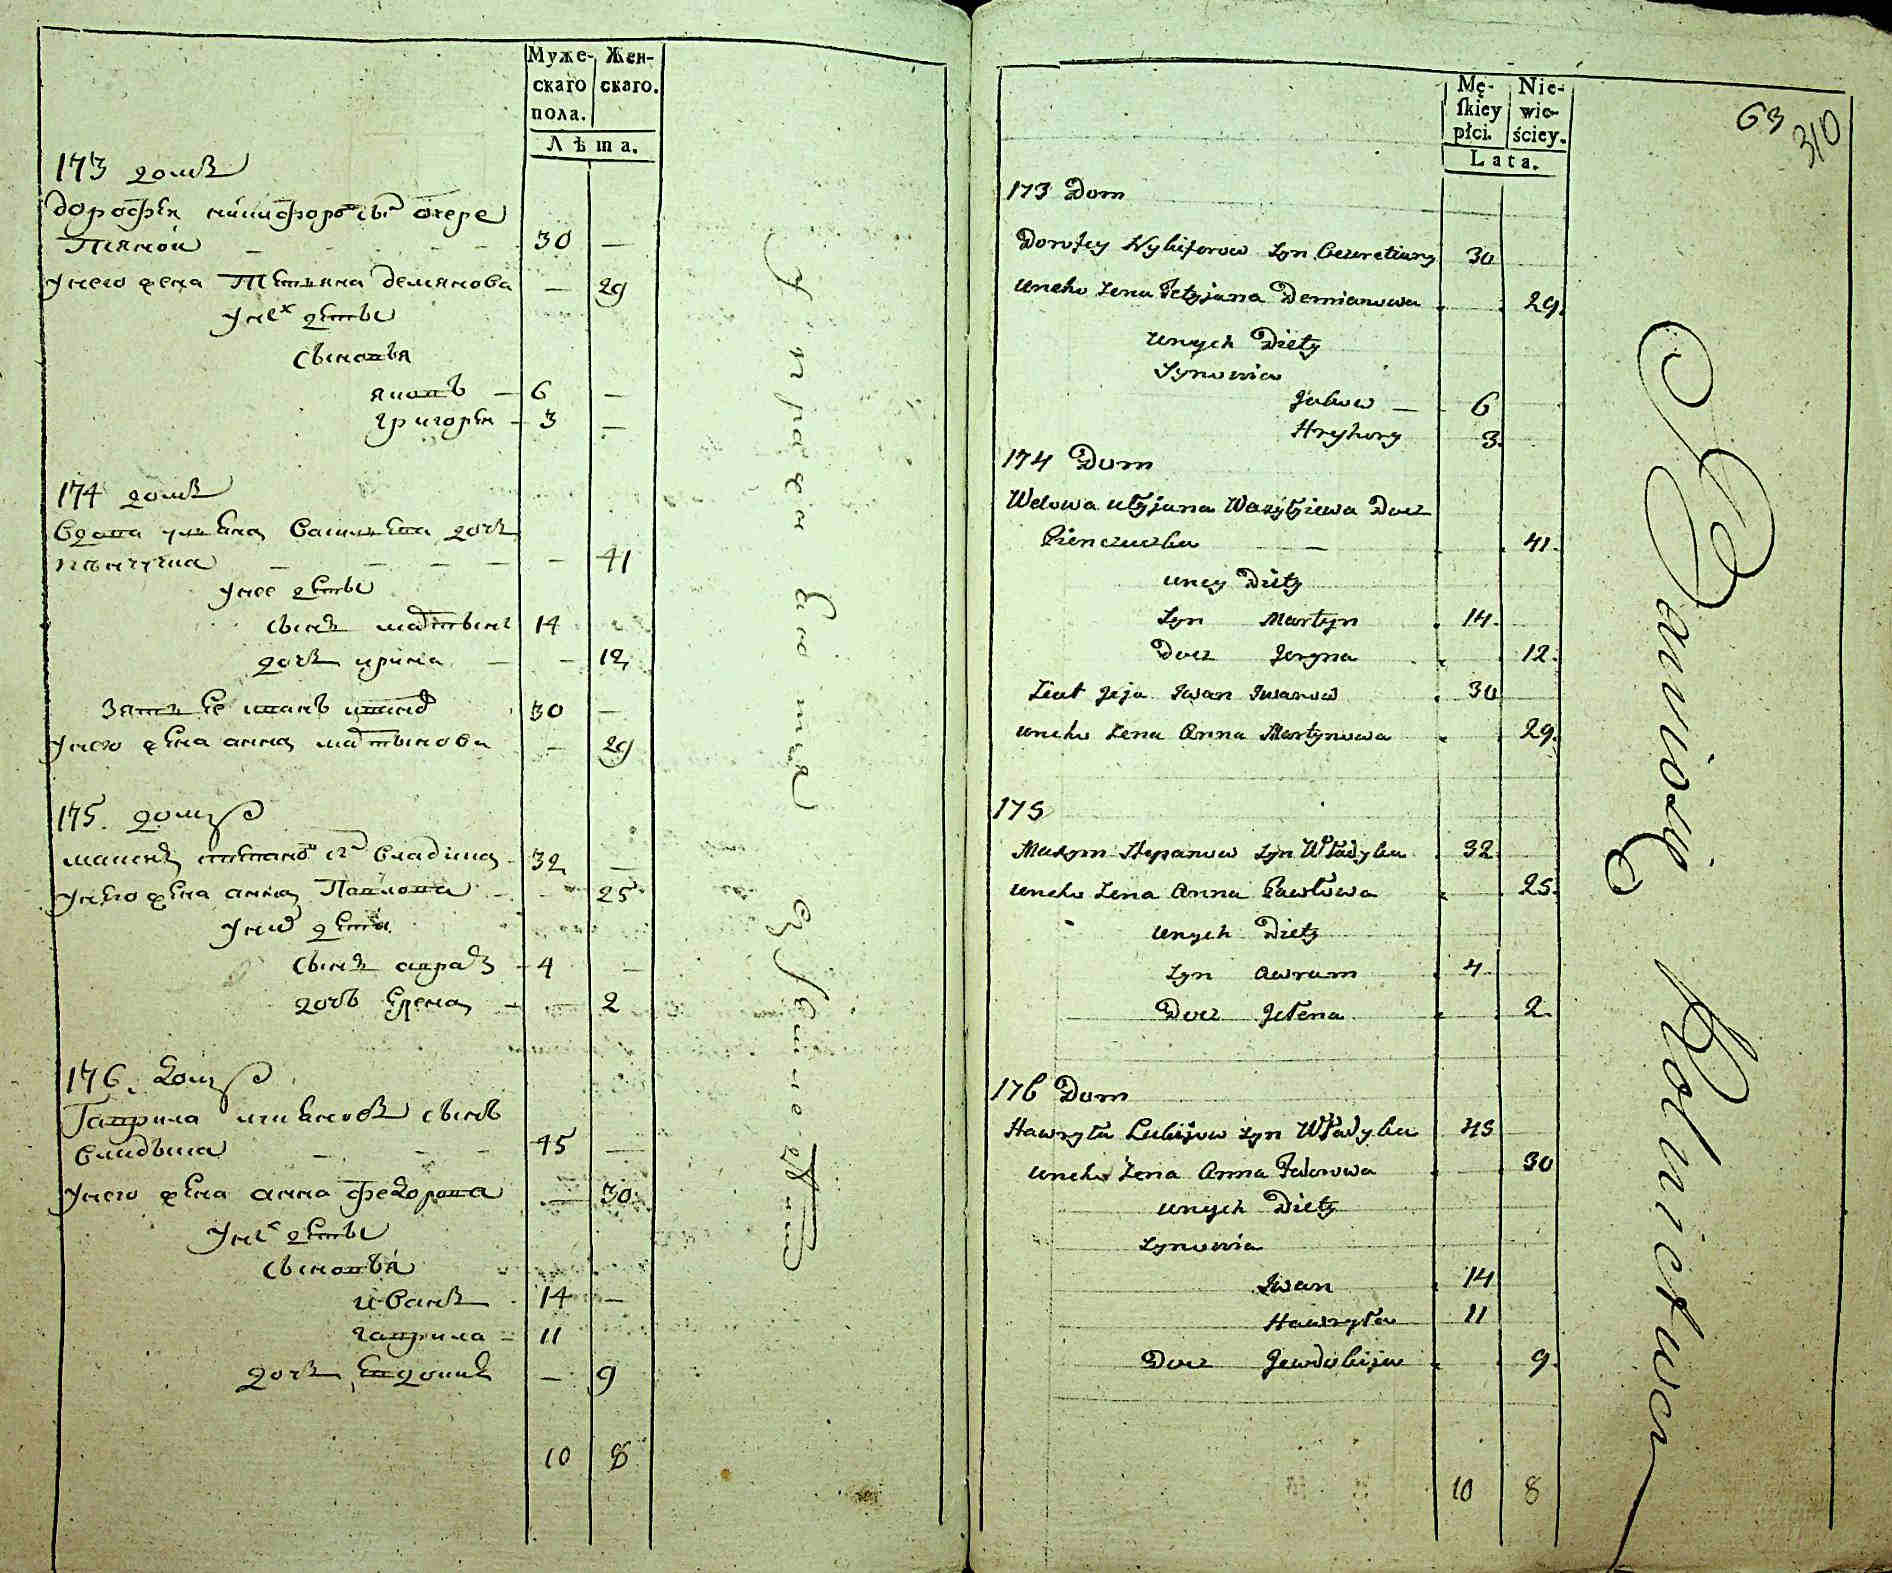 Муже- Жен-
скаго скаго.
пола.
Лѣта.
173 домъ
дорофѣи никифоровъ сынъ очере
тяной 30 —
унего жена Тетьяна демянова — 29
унихъ дѣты
сыновья
яковъ — 6 —
григорѣи — 3 —
174 домъ
вдова улияна Василиева дочъ
— 41
унее дѣты
сынъ мартынъ 14
дочъ ирина — 12
зять ее иванъ ивановъ 30 —
унего жена анна мартынова — 29
175. домъ
максимъ степановъ сынъ владика 32 —
унего жена анна Павлова — 25
унихъ дѣти
сынъ аврамъ 4 —
дочъ елена — 2
176. домъ
Гаврила сынъ
владыка 45 —
унего жена анна федорова — 30
унихъ дѣты
сыновья
иванъ 14 —
гаврила 11
дочъ евдокия — 9
10 8
Mę- Nie-
ſkiey wie-
płci. ściey.
Lata.
63
310
173 Dom
Dorofey Nykiforow Syn Oczeretiany 30
uneho Żena Tetyjana Demianowa 29
unych Diety
Synowia
Jakow — 6
Hryhory 3
174 Dom
Wdowa Ulyjana Wasylyiewa Docz
— 41
uney Diety
Syn Martyn 14
Docz Jeryna 12
Ziat Jeja Iwan Iwanow 30
uneho Żena Anna Martynowa 29
175
Maxym Stepanow Syn Władyka 32
uneho Żena Anna Pawłowa 25
unych Diety
Syn Awram 4
Docz Jełena 2
176 Dom
Hawryła Syn Władyka 45
uneho Żena Anna Fedorowa 30
unych Diety
Synowia
Iwan 14
Hawryła 11
Docz Jewdokija 9
10 8